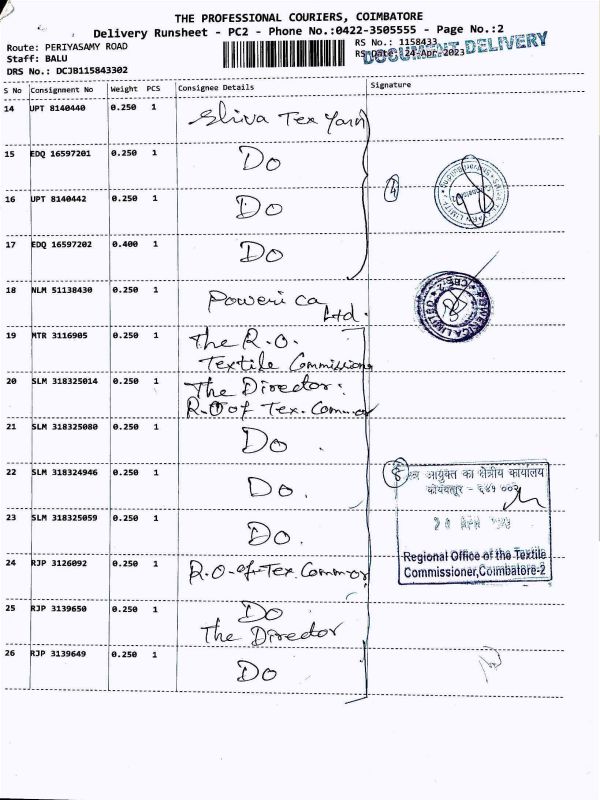 THE PROFESSIONAL COURIERS, COIMBATORE
Delivery Runsheet - PC2 - Phone No.:0422-3505555 - Page No.:2
Route: PERIYASAMY ROAD
Staff: BALU
DRS No.: DCJB115843302
RS No.: 1158433
RS Date: 24-Apr-2023
DOCUMENT DELIVERY
S No Consignment No Weight PCS Consignee Details Signature
14 UPT 8140440 0.250 1 Shiva Tex Yarn
15 EDQ 16597201 0.250 1 Do
16 UPT 8140442 0.250 1 Do
17 EDQ 16597202 0.400 1 Do
4
18 NLM 51138430 0.250 1 Powerica
Ltd.
POWERICA LIMITED
19 MTR 3116905 0.250 1 The R.O.
Textile Commission
20 SLM 318325014 0.250 1 The Director.
R.O of Tex. Commor
21 SLM 318325080 0.250 1 Do
22 SLM 318324946 0.250 1 Do.
23 SLM 318325059 0.250 1 Do.
24 RJP 3126092 0.250 1 R.O. of Tex. Commor
25 RJP 3139650 0.250 1 Do
The Director
26 RJP 3139649 0.250 1 Do
8
आयुक्त का क्षेत्रीय कार्यालय
कोयंबत्तूर - ६४१ ००२
Regional Office of the Textile
Commissioner, Coimbatore-2